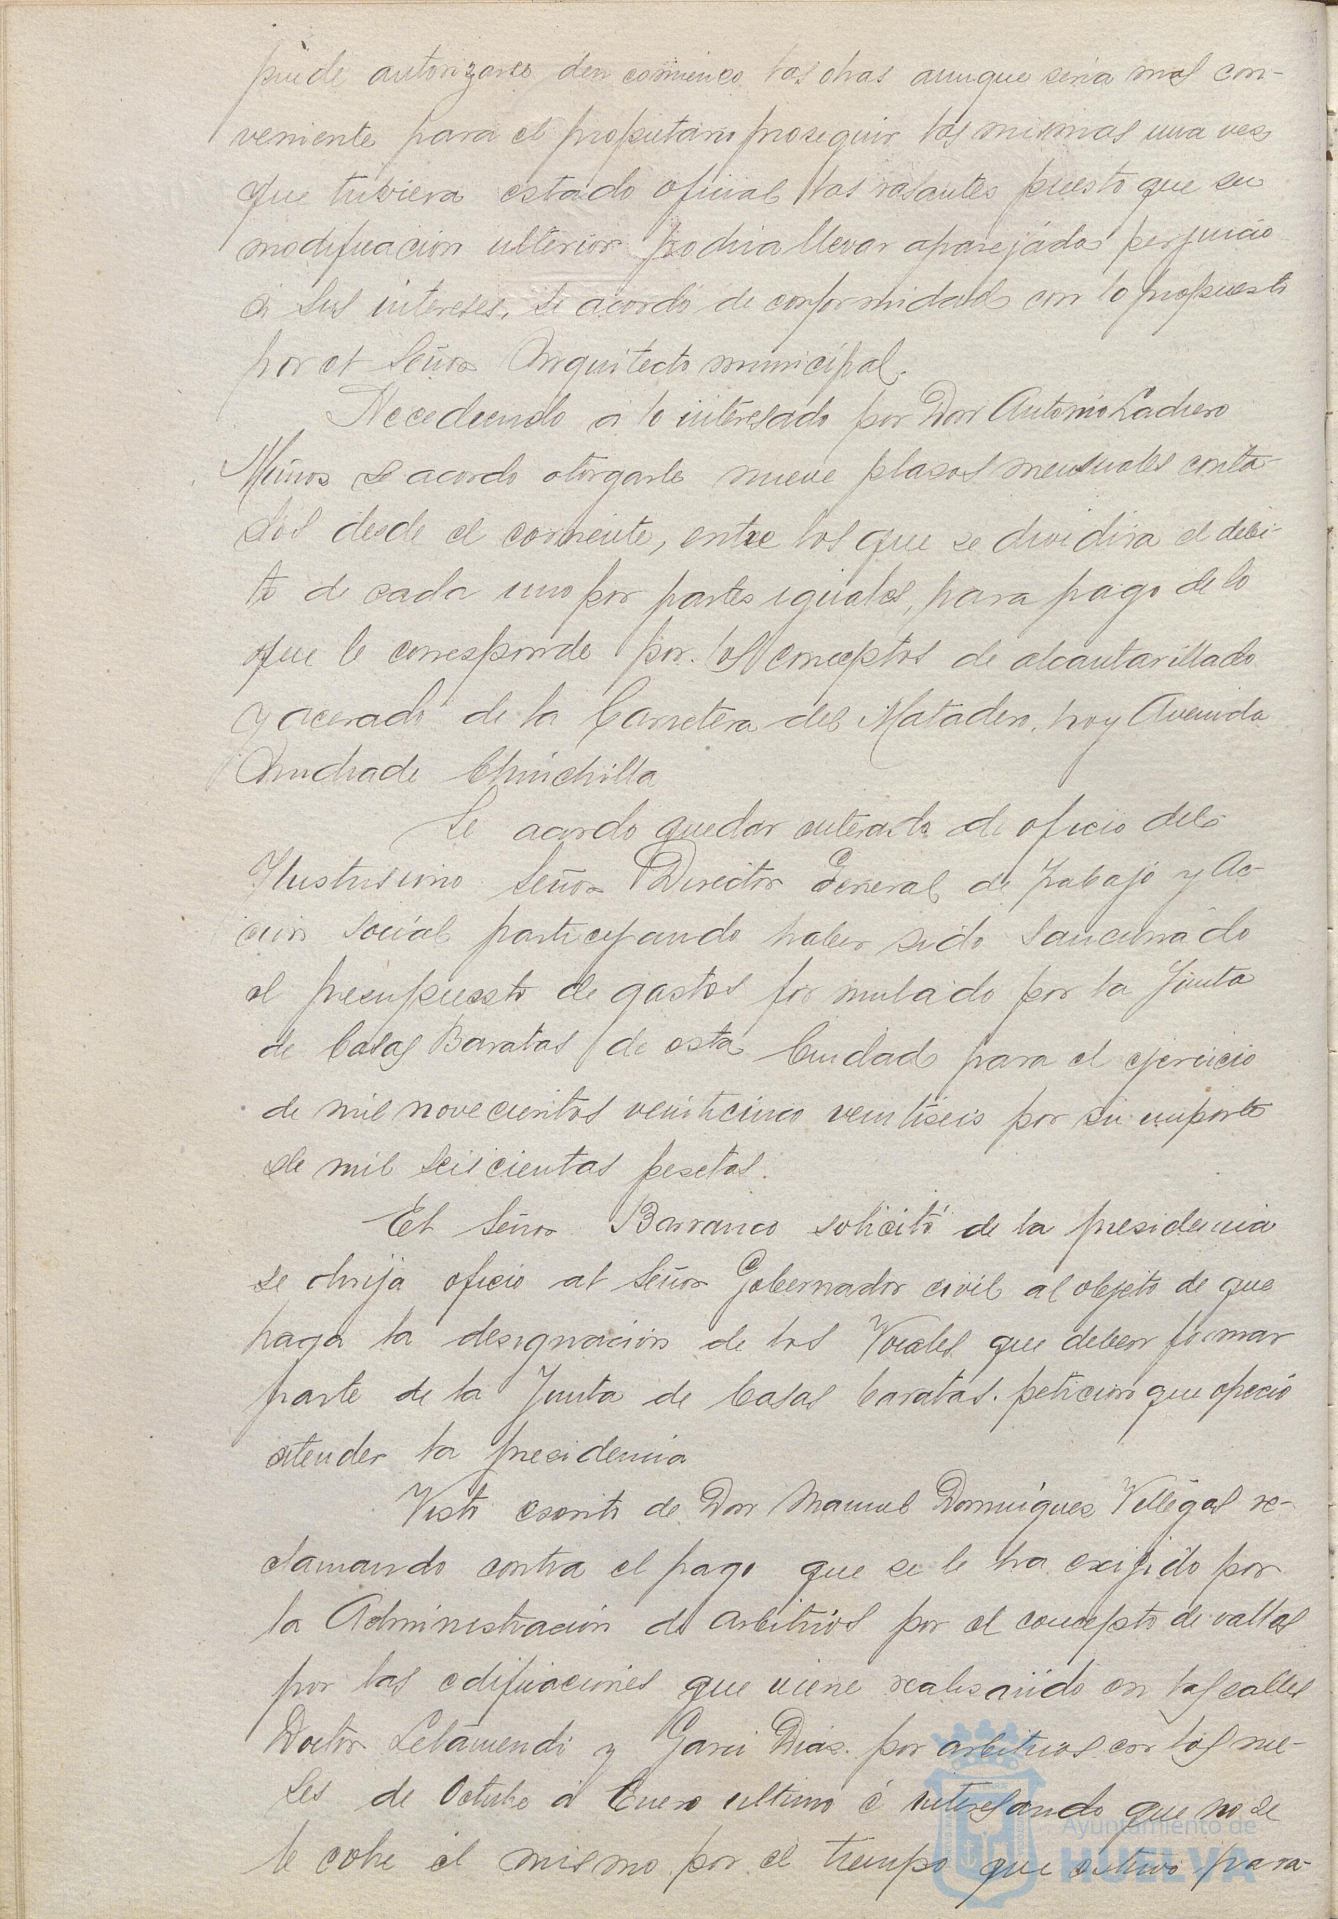 puede autorizarse den comienzo las obras aunque seria mas con-
veniente para el propietario proseguir las mismas una vez
que tuviera estado oficial las rasantes puesto que su
modificacion ulterior podria llevar aparejada perjuicio
a sus intereses, se acordó de conformidad con lo propuesto
por el Señor Arquitecto municipal.
Accediendo a lo interesado por Don Antonio Ladrero
Muñoz se acordo otorgarle nueve plasos mensuales conta-
dos desde el corriente, entre los que se dividira el debi-
to de cada uno por partes iguales, para pago de lo
que le corresponde por los conceptos de alcantarillado
y acerado de la Carretera del Matadero, hoy Avenida
Andrade Chinchilla
Se acordo quedar enterado de oficio del
Ilustrisimo Señor Director General de Trabajo y Ac-
cion social participando haber sido sancionado
el presupuesto de gastos formulado por la Junta
de Casas Baratas de esta Ciudad para el ejercicio
de mil novecientos veinticinco veintiseis por su importe
de mil seiscientas pesetas.
El Señor Barranco solicitó de la presidencia
se dirija oficio al Señor Gobernador civil al objeto de que
haga la designacion de los Vocales que deben formar
parte de la Junta de Casas baratas. peticion que ofreció
atender la presidencia
Visto escrito de Don Manuel Dominguez Villegas re-
clamando contra el pago que se le ha exigido por
la Administracion de arbitrios por el concepto de vallas
por las edificaciones que viene realisando en las calles
Doctor Letamendi y Garci Dias. por arbitrios con los me-
ses de Octubre a Enero ultimo é interesando que no se
le cobre el mismo por el tiempo que estuvo para-
Ayuntamiento de
HUELVA